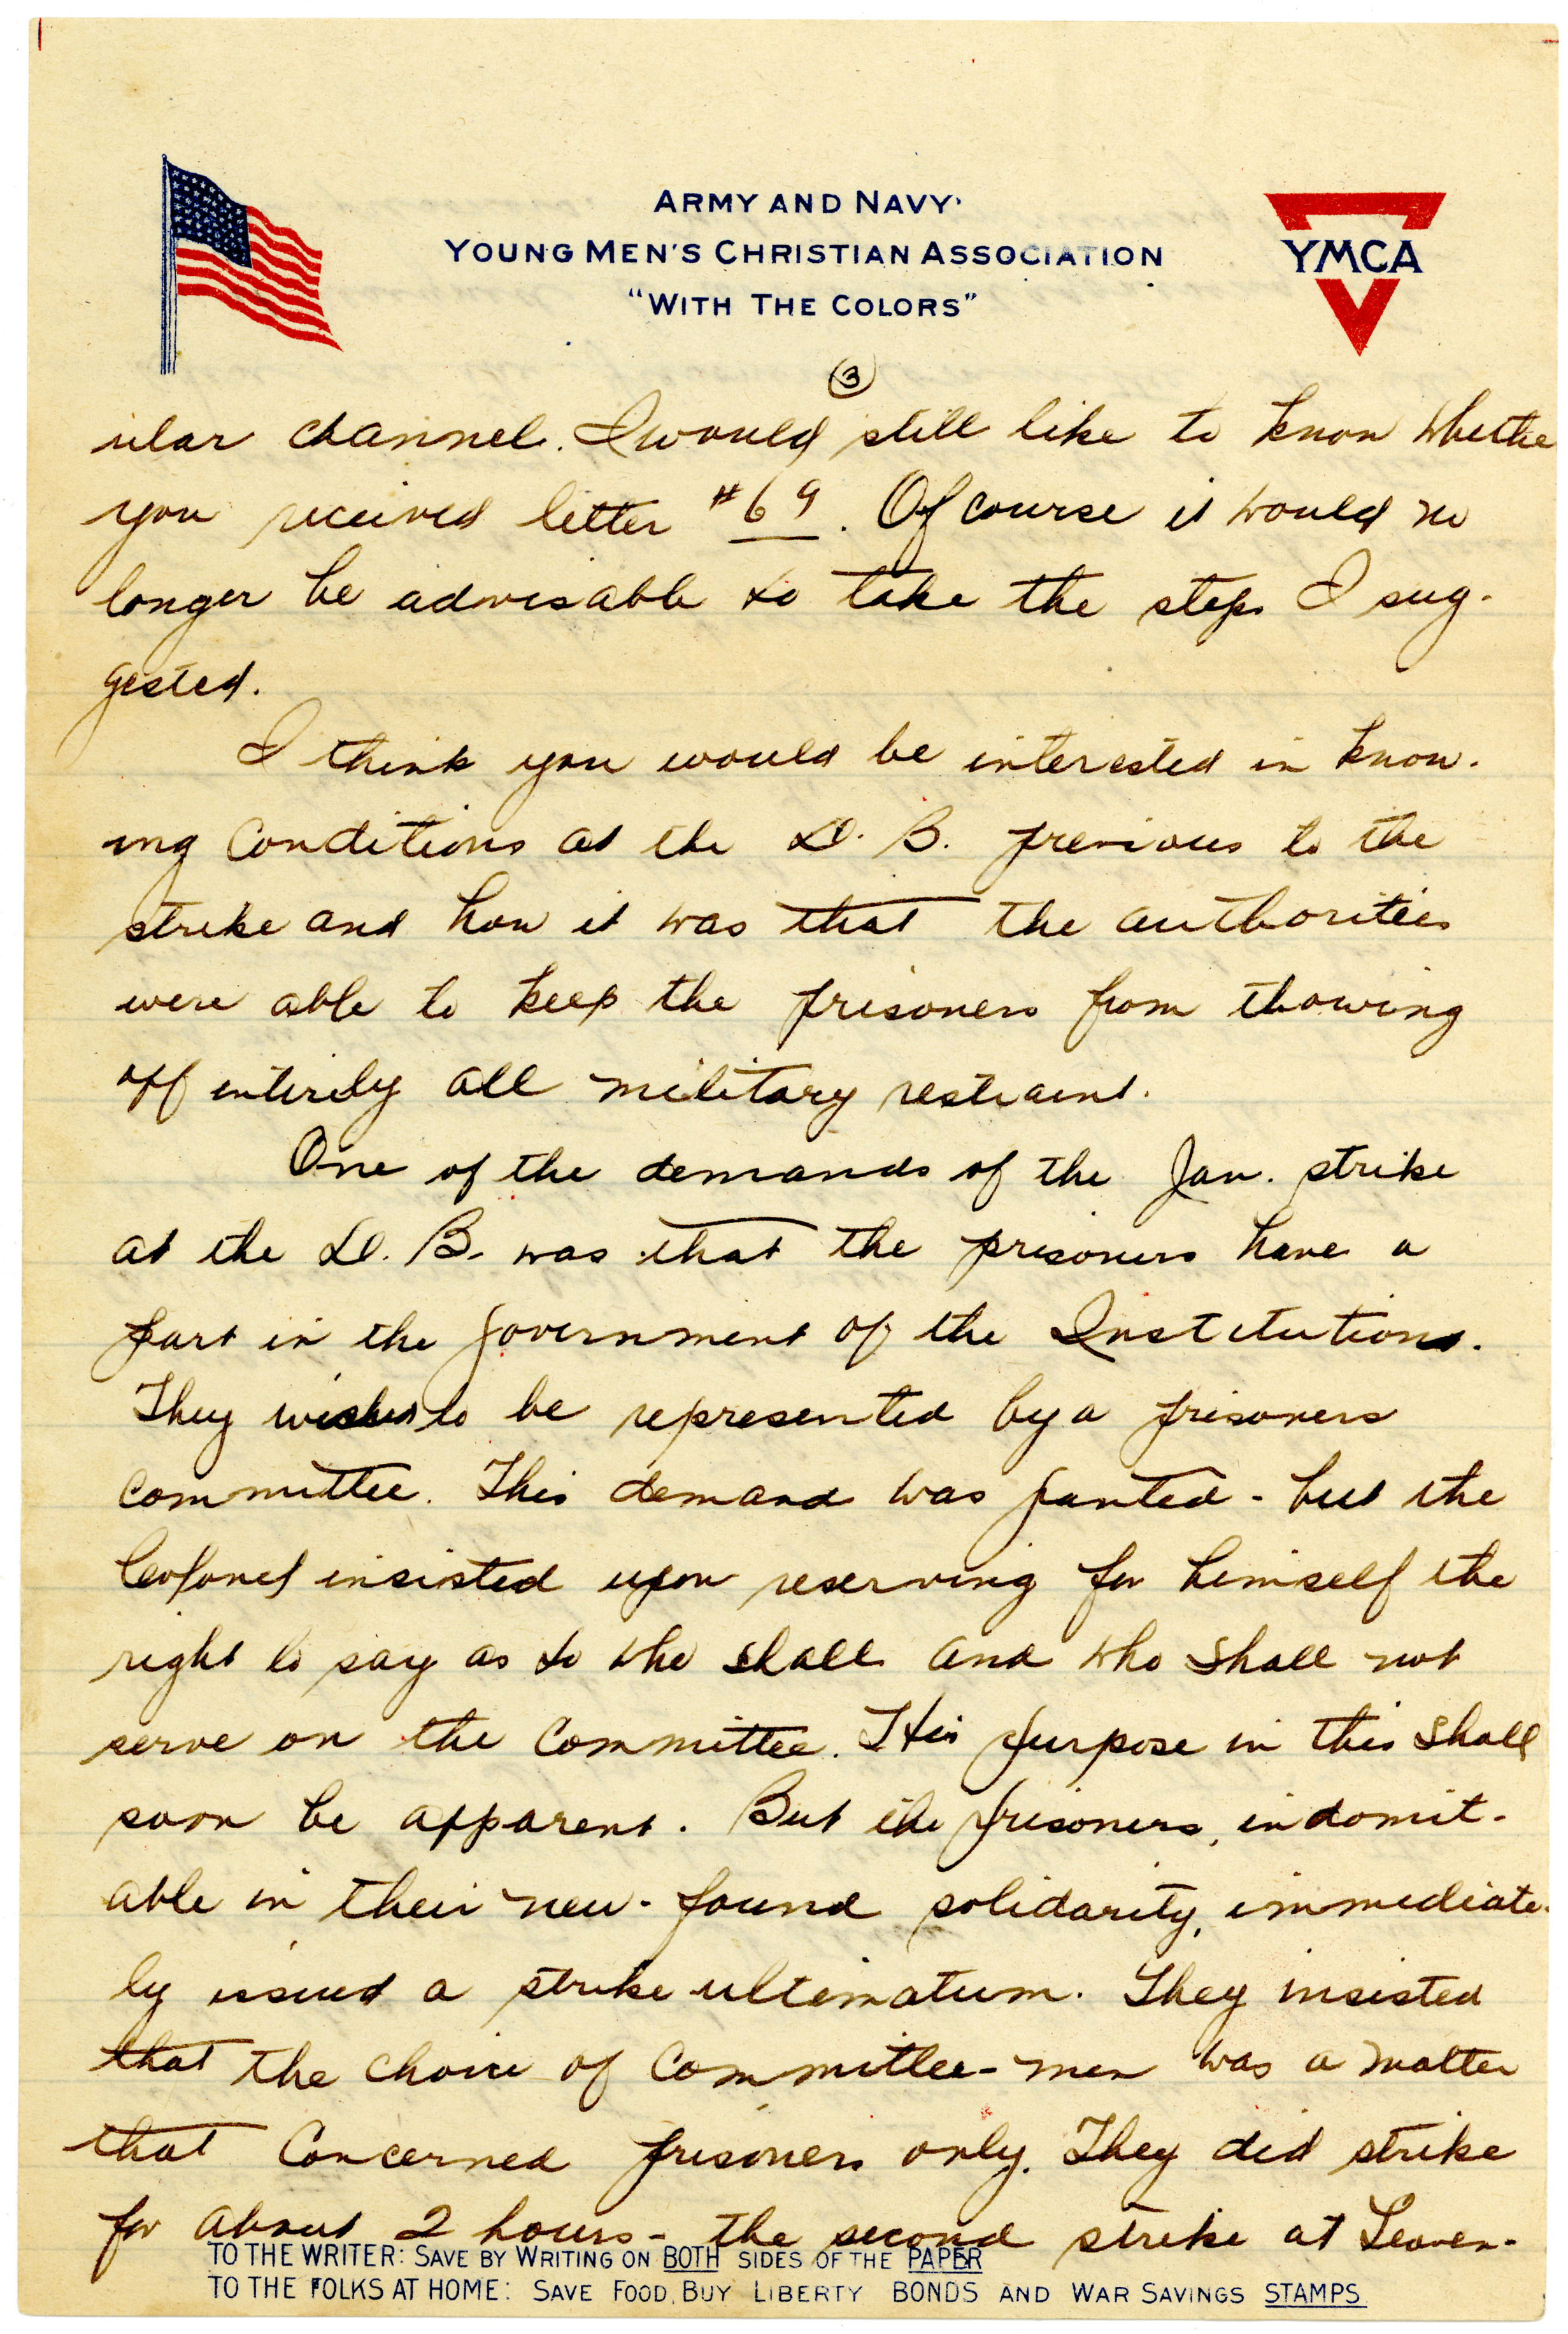 ARMY AND NAVY
YOUNG MEN'S CHRISTIAN ASSOCIATION
"WITH THE COLORS"
YMCA
3
ular channel. I would still like to know whethe
you received letter #69. Of course it would no
longer be advisable to take the steps I sug-
gested.
I think you would be interested in know-
ing conditions at the D. B. previous to the
strike and how it was that the authorities
were able to keep the prisoners from thowing
off entirely all military restraint.
One of the demands of the Jan. strike
at the D. B. was that the prisoners have a
part in the government of the Institutions.
They wished to be represented by a prisoners
committee. This demand was granted - but the
Colonel insisted upon reserving for himself the
right to say as to who shall and who shall not
serve on the Committee. His purpose in this shall
soon be apparent. But the prisoners, indomit-
able in their new-found solidarity, immediate-
ly issued a strike ultimatum. They insisted
that the choice of Committee-men was a matter
that concerned prisoners only. They did strike
for about 2 hours - the second strike at Leaven-
TO THE WRITER: SAVE BY WRITING ON BOTH SIDES OF THE PAPER
TO THE FOLKS AT HOME: SAVE FOOD, BUY LIBERTY BONDS AND WAR SAVINGS STAMPS